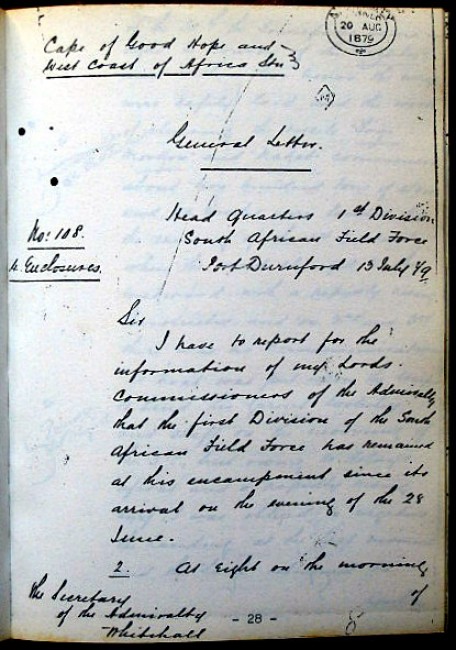 20 AUG
1879
Cape of Good Hope and
West Coast of Africa Stn
General Letter.
Head Quarters 1st Division
South African Field Force
Port Durnford 13 July 79
No: 108.
4. Enclosures.
Sir
I have to report for the
information of my Lords
Commissioners of the Admiralty
that the first Division of the South
African Field Force has remained
at his encampment since its
arrival on the evening of the 28
June.
2. At eight on the morning
of
The Secretary
of the Admiralty
Whitehall
- 28 -